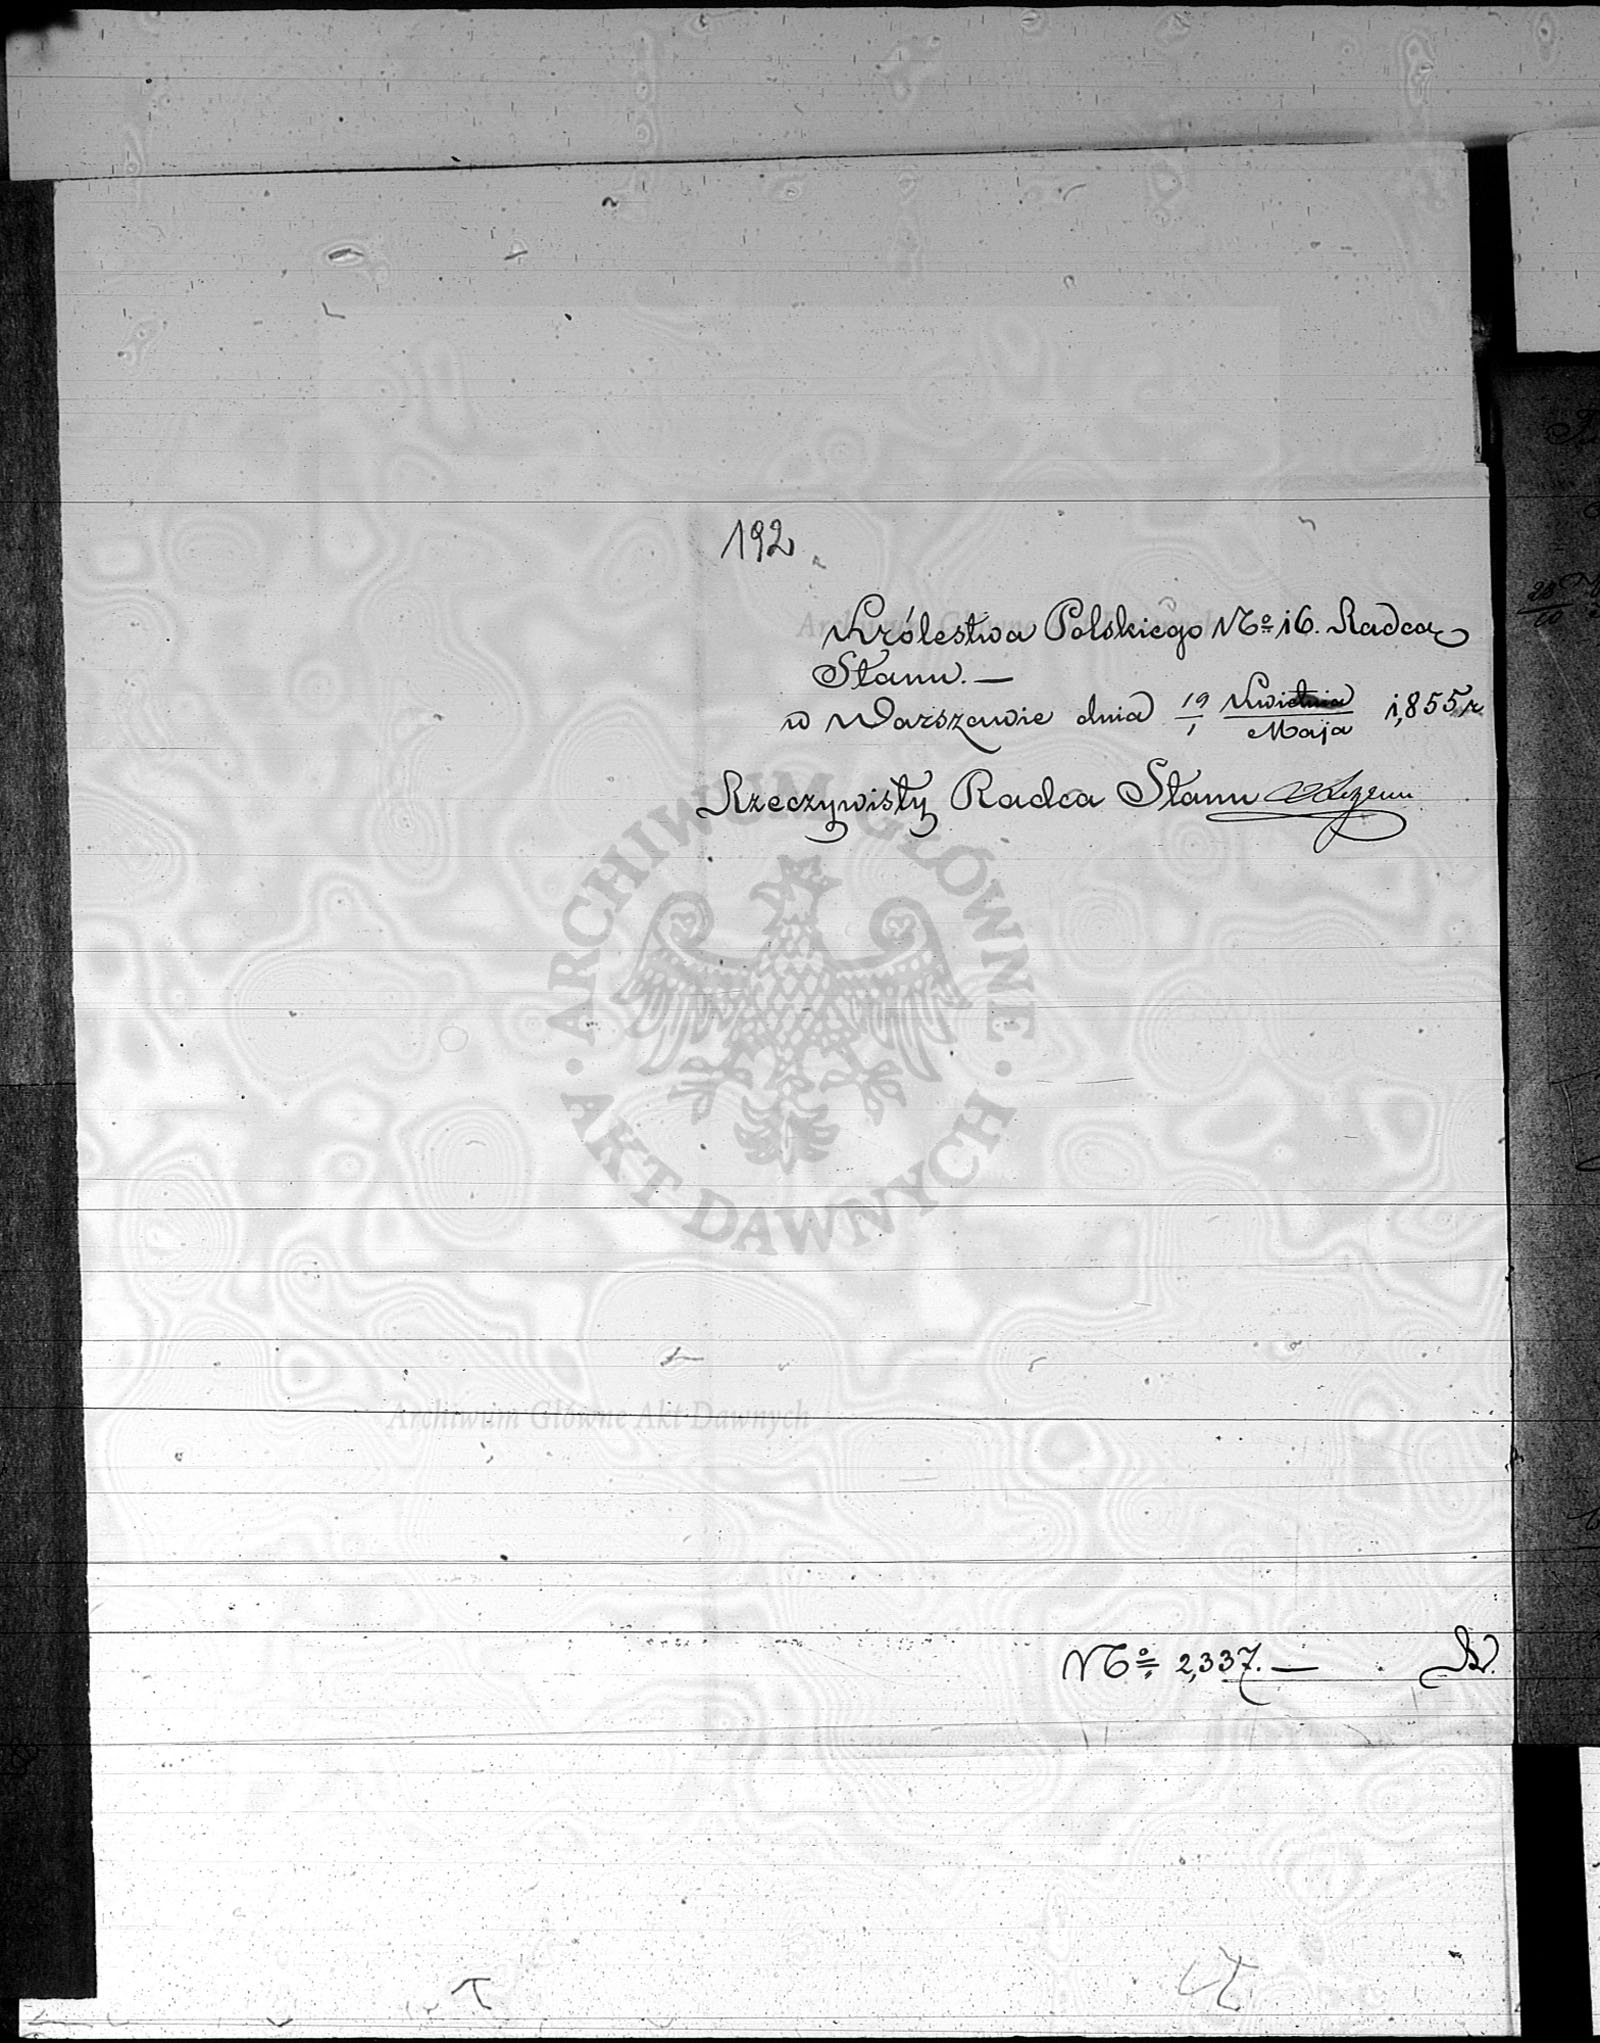 192
Królestwa Polskiego No 16. Radca
Stanu. —
w Warszawie dnia 19/1 Kwietnia/Maja 1,855 r
Rzeczywisty Radca Stanu
ARCHIWUM GŁÓWNE
AKT DAWNYCH
Archiwum Główne Akt Dawnych
No 2,337. —